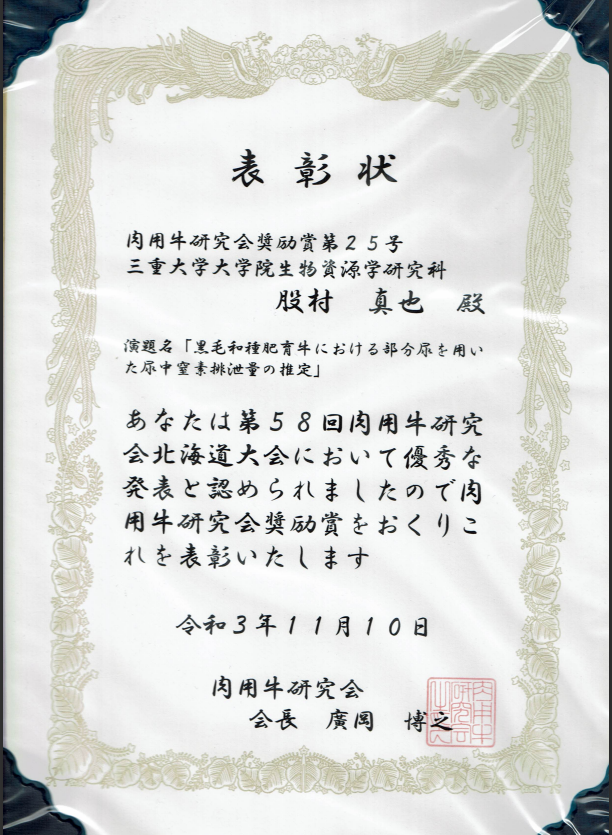 表彰状
肉用牛研究会奨励賞第25号
三重大学大学院生物資源学研究科
股村 真也 殿
演題名「黒毛和種肥育牛における部分尿を用い
た尿中窒素排泄量の推定」
あなたは第58回肉用牛研究
会北海道大会において優秀な
発表と認められましたので肉
用牛研究会奨励賞をおくりこ
れを表彰いたします
令和3年11月10日
肉用牛研究会
会長 廣岡 博之